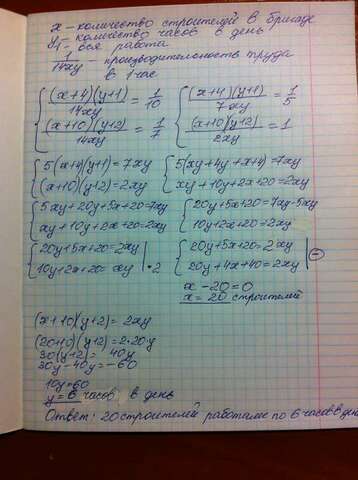 x - количество строителей в бригаде
y - количество часов в день
1 - вся работа
1/14xy - производительность труда
в 1 час
{ (x+4)(y+1)/14xy = 1/10 { (x+4)(y+1)/7xy = 1/5
{ (x+10)(y+2)/14xy = 1/7 { (x+10)(y+2)/2xy = 1
{ 5(x+4)(y+1) = 7xy { 5(xy+4y+x+4) = 7xy
{ (x+10)(y+2) = 2xy { xy+10y+2x+20 = 2xy
{ 5xy+20y+5x+20 = 7xy { 20y+5x+20 = 7xy-5xy
{ xy+10y+2x+20 = 2xy { 10y+2x+20 = 2xy
{ 20y+5x+20 = 2xy { 20y+5x+20 = 2xy
{ 10y+2x+20 = xy | ·2 { 20y+4x+40 = 2xy | -
x - 20 = 0
x = 20 строителей
(x+10)(y+2) = 2xy
(20+10)(y+2) = 2·20·y
30(y+2) = 40y
30y - 40y = -60
10y = 60
y = 6 часов в день
Ответ: 20 строителей работали по 6 часов в день